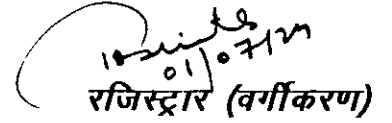 01/07/24
रजिस्ट्रार (वर्गीकरण)